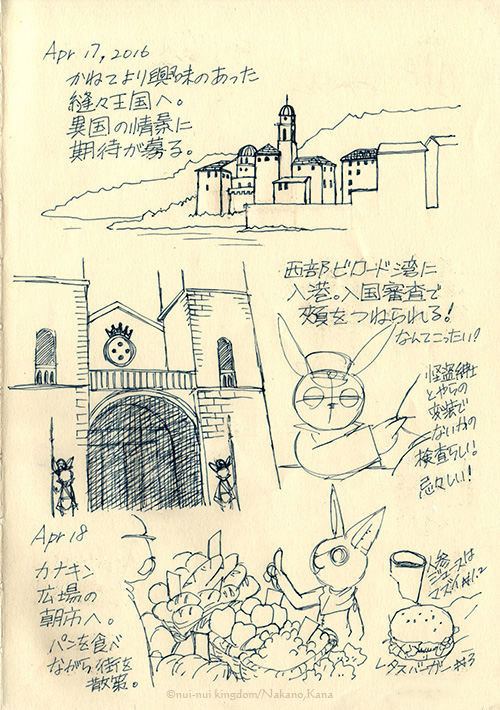 Apr 17, 2016
かねてより興味のあった
縫々王国へ。
異国の情景に
期待が募る。
西部ビロード湾に
入港。入国審査で
頬をつねられる！
なんてこったい！
怪盗紳士
とやらの
変装で
ないかの
検査らしい。
忌々しい！
Apr 18
カナキン
広場の
朝市へ。
パンを食べ
ながら街を
散策。
人参
ジュースは
マズイ
レタスバーガー
©nui-nui kingdom/Nakano,Kana